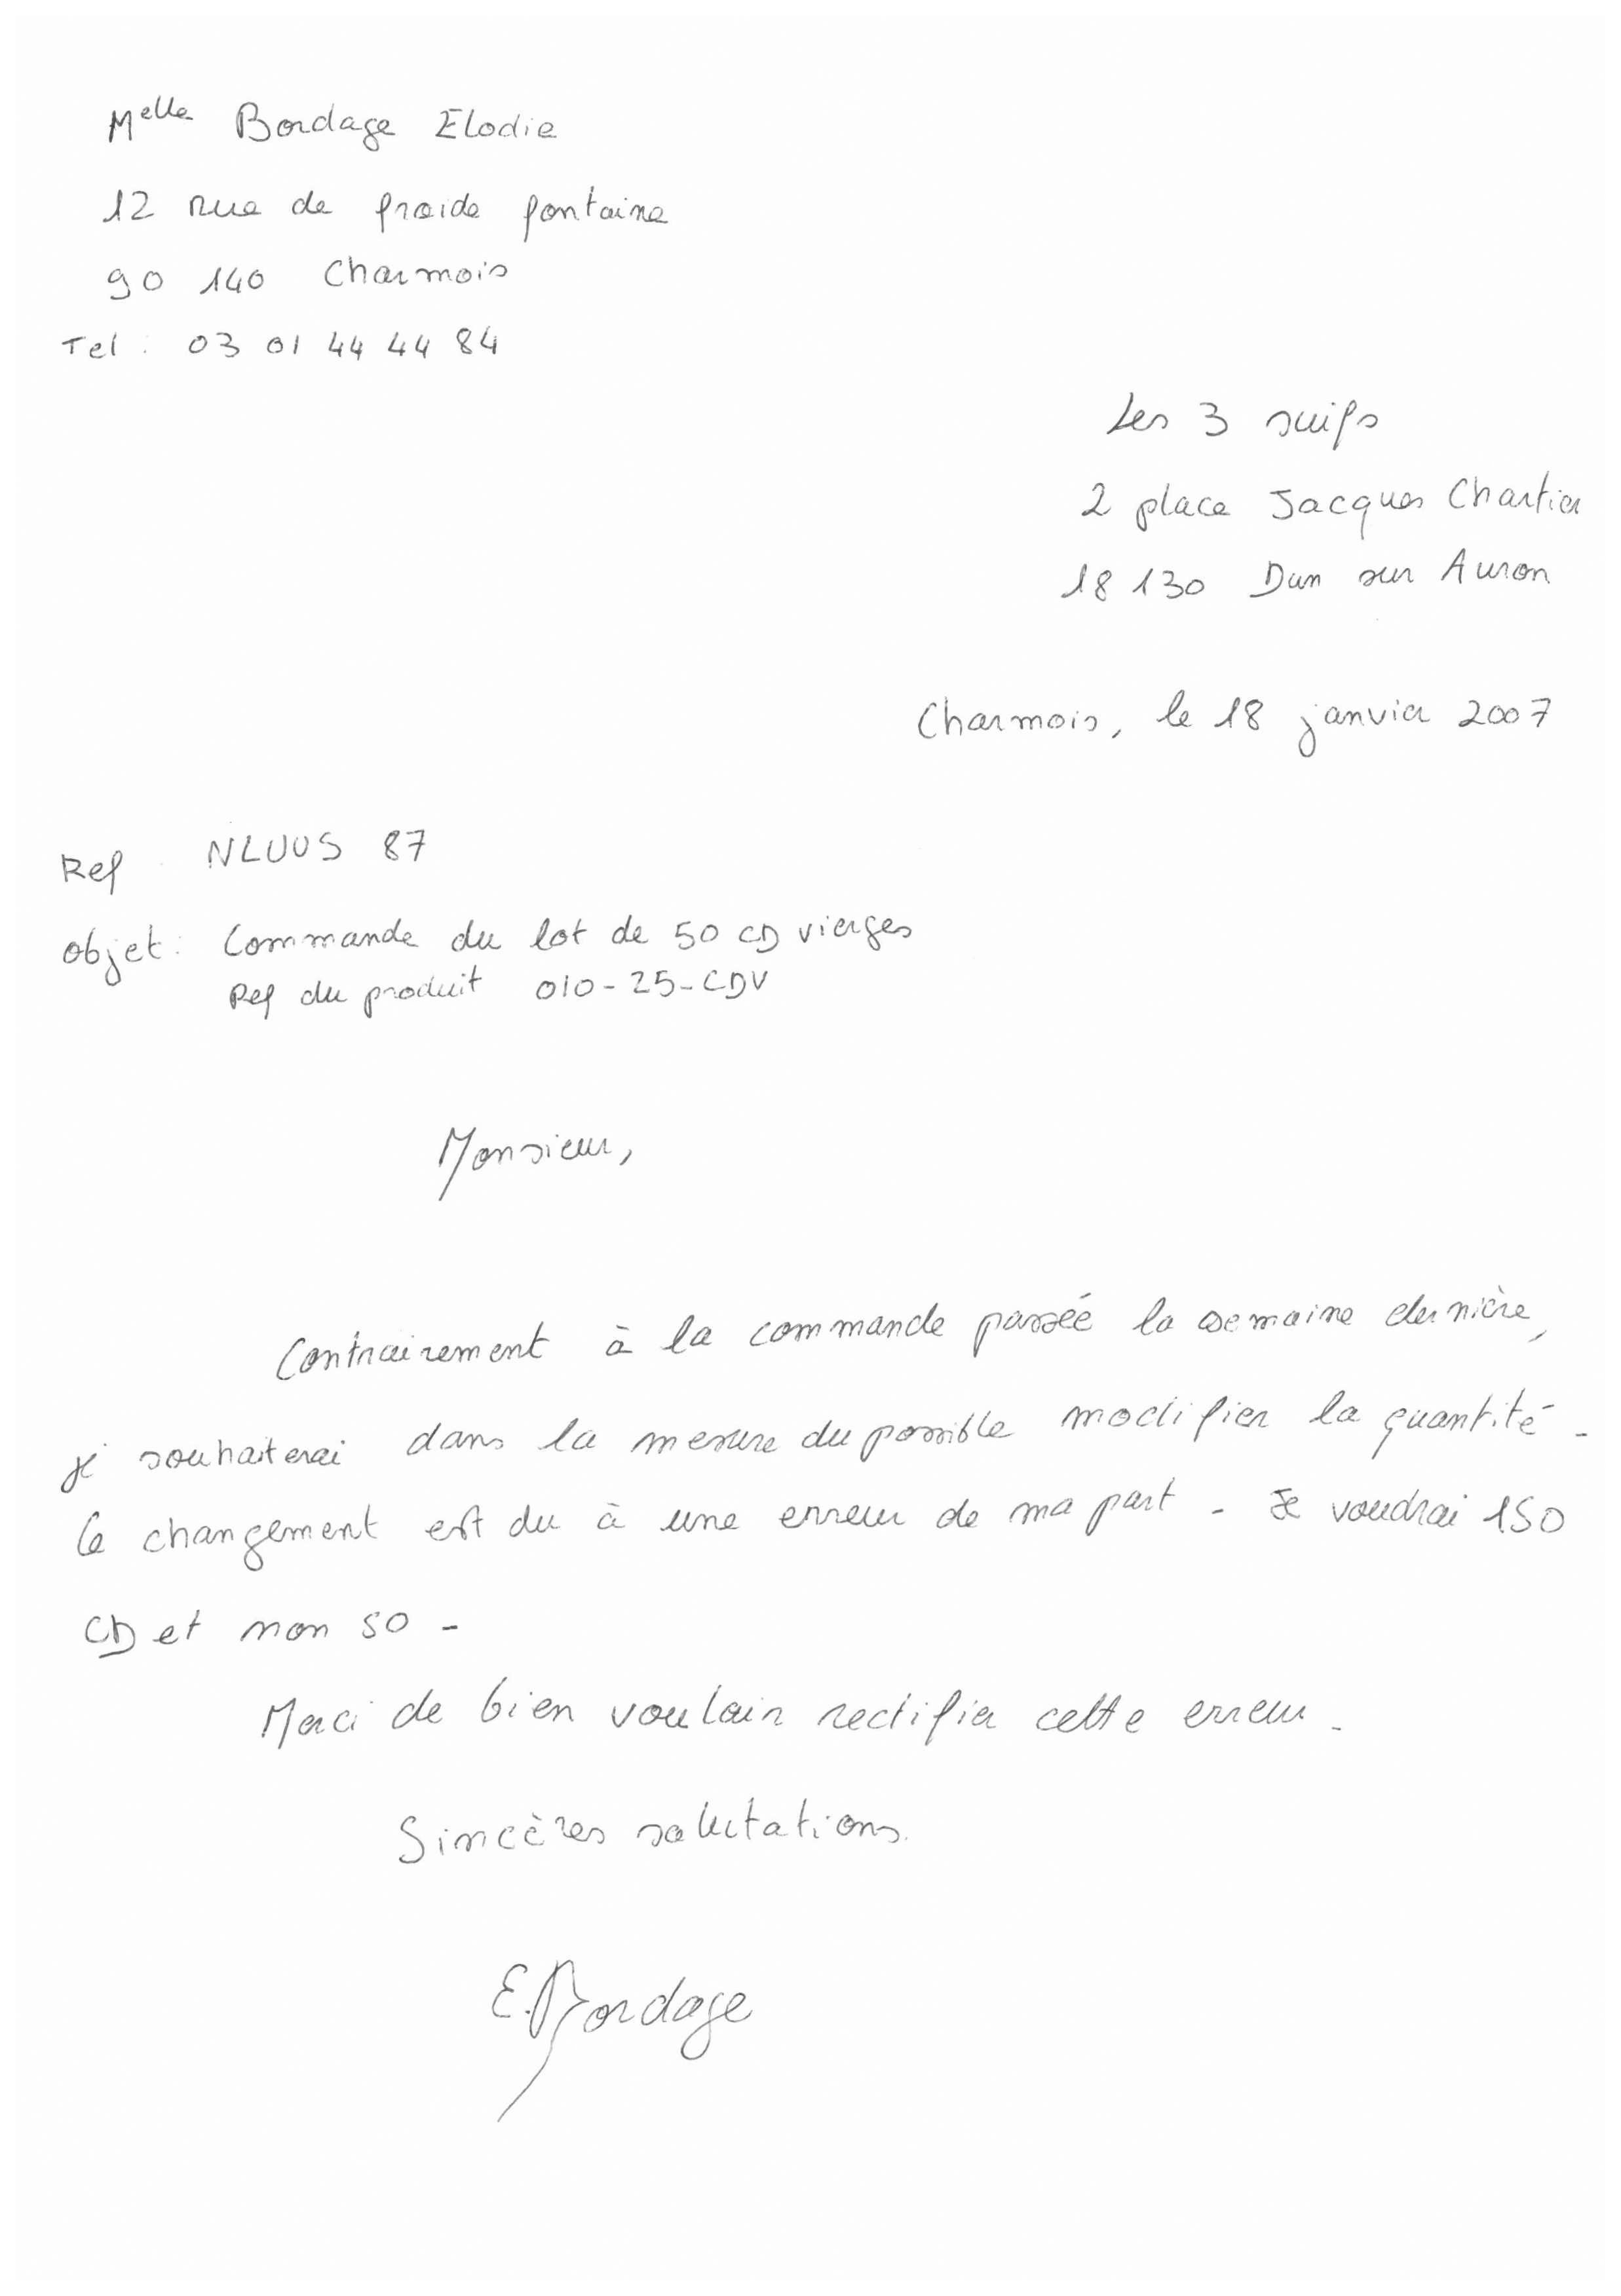 Melle Bordage Elodie
12 rue de froide fontaine
90 140 Charmois
Tel : 03 01 44 44 84
Les 3 suifs
2 place Jacques Chartier
18 130 Dun sur Auron
Charmois, le 18 janvier 2007
Ref NLUUS 87
objet : Commande du lot de 50 CD vierges
Ref du produit 010-25-CDV
Monsieur,
Contrairement à la commande passée la semaine dernière,
je souhaiterai dans la mesure du possible modifier la quantité.
Ce changement est du à une erreur de ma part. Je voudrai 150
CD et non 50.
Merci de bien vouloir rectifier cette erreur.
Sincères salutations.
E.Bordage